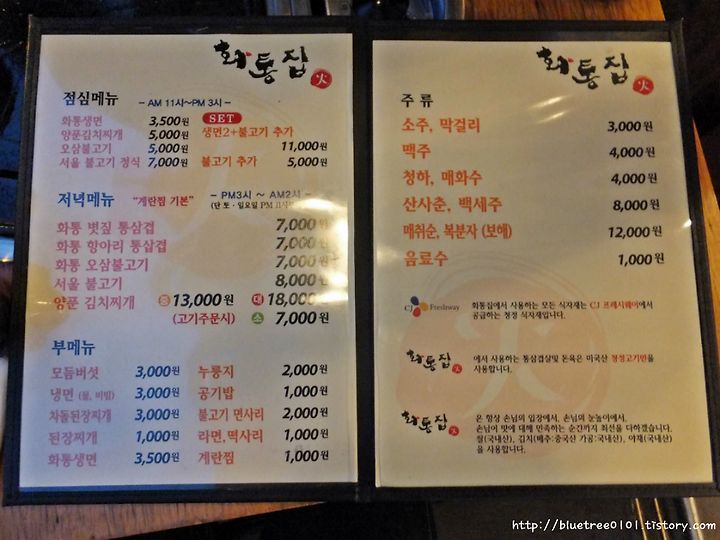 화통집 火
점심메뉴 - AM 11시~PM 3시 -
화통생면 3,500원 SET
양푼김치찌개 5,000원 생면2+불고기 추가
오삼불고기 5,000원 11,000원
서울 불고기 정식 7,000원 불고기 추가 5,000원
저녁메뉴 "계란찜 기본" - PM3시 ~ AM2시 -
(단 토·일요일 PM
화통 볏짚 통삼겹 7,000원
화통 항아리 통삼겹 7,000원
화통 오삼불고기 7,000원
서울 불고기 8,000원
양푼 김치찌개 중 13,000원 대 18,000원
(고기주문시) 소 7,000원
부메뉴
모듬버섯 3,000원 누룽지 2,000원
냉면 (물, 비빔) 3,000원 공기밥 1,000원
차돌된장찌개 3,000원 불고기 면사리 2,000원
된장찌개 1,000원 라면,떡사리 1,000원
화통생면 3,500원 계란찜 1,000원
화통집 火
주 류
소주, 막걸리 3,000원
맥주 4,000원
청하, 매화수 4,000원
산사춘, 백세주 8,000원
매취순, 복분자 (보해) 12,000원
음료수 1,000원
CJ Freshway 화통집에서 사용하는 모든 식자재는 CJ 프레시웨이에서
공급하는 청정 식자재입니다.
화통집 에서 사용하는 통삼겹살및 돈육은 미국산 청정고기만을
사용합니다.
화통집 은 항상 손님의 입장에서, 손님의 눈높이에서,
손님이 맛에 대해 만족하는 순간까지 최선을 다하겠습니다.
쌀(국내산), 김치(배추:중국산 가공:국내산), 야채(국내산)
을 사용합니다.
http://bluetree0101.tistory.com